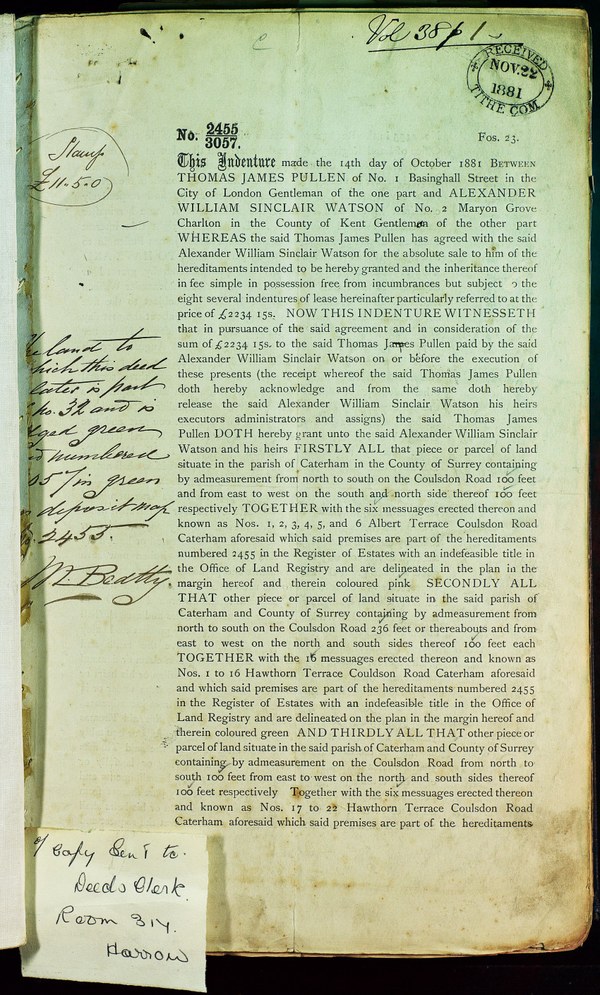 Vol 38 p 1
RECEIVED
NOV. 22
1881
TITHE COM.
No. 2455
3057.
Fos. 23.
Stamp
£11.5.0
This Indenture made the 14th day of October 1881 BETWEEN
THOMAS JAMES PULLEN of No. 1 Basinghall Street in the
City of London Gentleman of the one part and ALEXANDER
WILLIAM SINCLAIR WATSON of No. 2 Maryon Grove
Charlton in the County of Kent Gentleman of the other part
WHEREAS the said Thomas James Pullen has agreed with the said
Alexander William Sinclair Watson for the absolute sale to him of the
hereditaments intended to be hereby granted and the inheritance thereof
in fee simple in possession free from incumbrances but subject o the
eight several indentures of lease hereinafter particularly referred to at the
price of £2234 15s. NOW THIS INDENTURE WITNESSETH
that in pursuance of the said agreement and in consideration of the
sum of £2234 15s. to the said Thomas James Pullen paid by the said
Alexander William Sinclair Watson on or before the execution of
these presents (the receipt whereof the said Thomas James Pullen
doth hereby acknowledge and from the same doth hereby
release the said Alexander William Sinclair Watson his heirs
executors administrators and assigns) the said Thomas James
Pullen DOTH hereby grant unto the said Alexander William Sinclair
Watson and his heirs FIRSTLY ALL that piece or parcel of land
situate in the parish of Caterham in the County of Surrey containing
by admeasurement from north to south on the Coulsdon Road 100 feet
and from east to west on the south and north side thereof 100 feet
respectively TOGETHER with the six messuages erected thereon and
known as Nos. 1, 2, 3, 4, 5, and 6 Albert Terrace Coulsdon Road
Caterham aforesaid which said premises are part of the hereditaments
numbered 2455 in the Register of Estates with an indefeasible title in
the Office of Land Registry and are delineated in the plan in the
margin hereof and therein coloured pink SECONDLY ALL
THAT other piece or parcel of land situate in the said parish of
Caterham and County of Surrey containing by admeasurement from
north to south on the Coulsdon Road 236 feet or thereabouts and from
east to west on the north and south sides thereof 100 feet each
TOGETHER with the 16 messuages erected thereon and known as
Nos. 1 to 16 Hawthorn Terrace Couldson Road Caterham aforesaid
and which said premises are part of the hereditaments numbered 2455
in the Register of Estates with an indefeasible title in the Office of
Land Registry and are delineated on the plan in the margin hereof and
therein coloured green AND THIRDLY ALL THAT other piece or
parcel of land situate in the said parish of Caterham and County of Surrey
containing by admeasurement on the Coulsdon Road from north to
south 100 feet from east to west on the north and south sides thereof
100 feet respectively Together with the six messuages erected thereon
and known as Nos. 17 to 22 Hawthorn Terrace Coulsdon Road
Caterham aforesaid which said premises are part of the hereditaments
land to
hich this deed
lates is part
No. 32 and is
ged green
numbered
57 in green
deposit map
2455.
Beatty.
Copy Sent to
Deeds Clerk.
Room 314.
Harrow